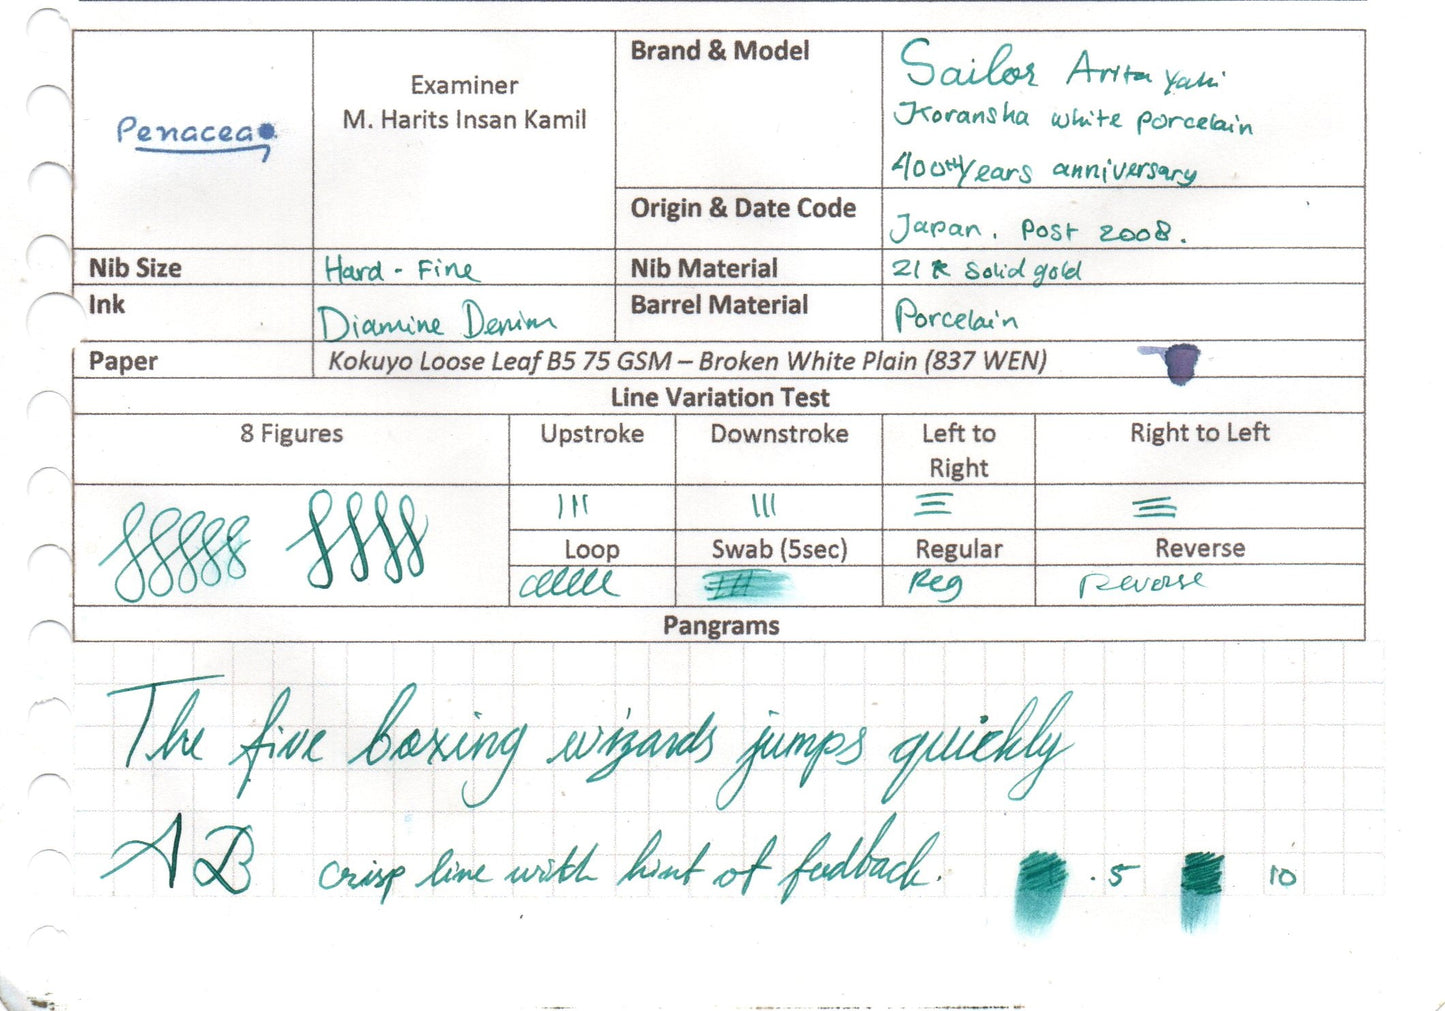 Penacea
Examiner
M. Harits Insan Kamil
Brand & Model
Sailor Arita yaki
Koransha white porcelain
400th Years anniversary
Origin & Date Code
Japan. Post 2008.
Nib Size
Hard - Fine
Nib Material
21 K Solid gold
Ink
Diamine Denim
Barrel Material
Porcelain
Paper
Kokuyo Loose Leaf B5 75 GSM – Broken White Plain (837 WEN)
Line Variation Test
8 Figures
Upstroke
Downstroke
Left to
Right
Right to Left
Loop
Swab (5sec)
Regular
Reverse
Reg
Reverse
Pangrams
The five boxing wizards jumps quickly
AB crisp line with hint of feedback. . 5 10